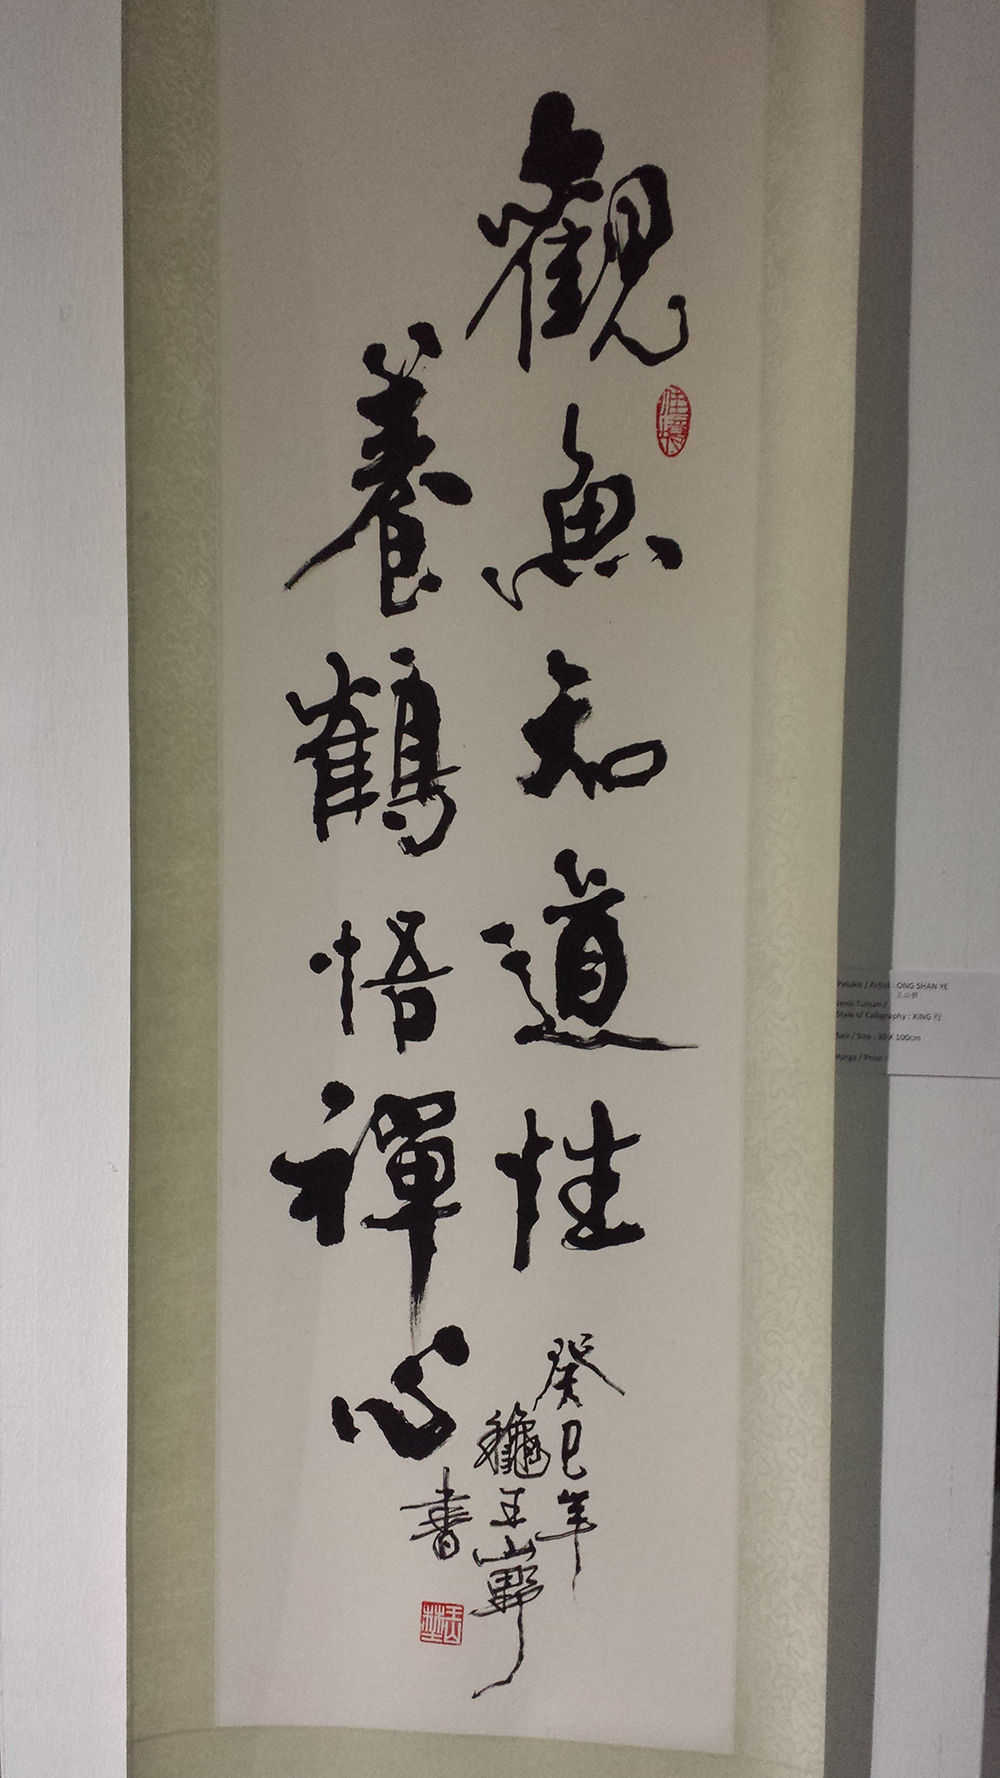 觀魚知道性
養鶴悟禪心
癸巳年
龝王山野
書
Pelukis / Artist : ONG SHAN YE
王山野
Jenis Tulisan /
Style of Calligraphy : XING 行
Saiz / Size : 30 X 100cm
Harga / Prize :